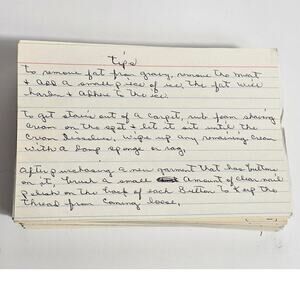 Tips
To remove fat from gravy, remove the meat
& add a small piece of ice, the fat will
harden & adhere to the ice.
To get stains out of a carpet, rub foam shaving
cream on the spot & let it sit until the
cream dissolves. Wipe up any remaining cream
with a damp sponge or rag.
After purchasing a new garment that has buttons
on it, brush a small amount of clear nail
polish on the back of each Button to keep the
thread from coming loose.